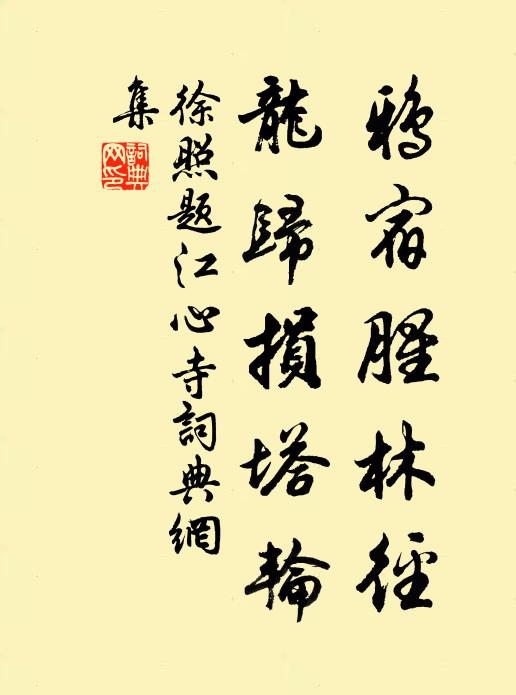 鴉宿腥林徑
龍歸損塔輪
徐照題江心寺詞典網
集
詞典網印